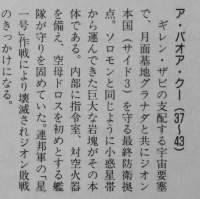 ア・バオア・クー（37〜43）
ギレン・ザビの支配する宇宙要塞
で、月面基地グラナダと共にジオン
本国（サイド3）を守る最終防衛拠
点。ソロモンと同じように小惑星帯
から運んできた巨大な岩塊がその本
体である。内部に指令室、対空火器
を備え、空母ドロスを初めとする艦
隊が守りを固めていた。連邦軍の「星
一号」作戦により壊滅されジオン敗戦
のきっかけになる。